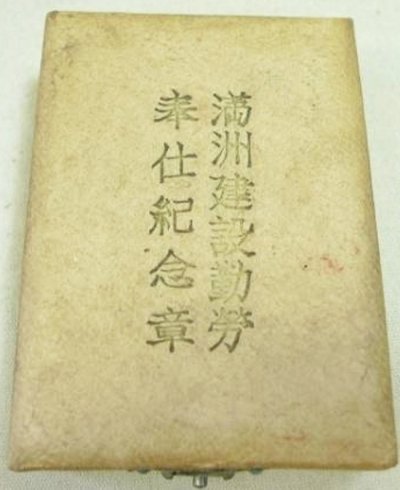 満洲建設勤勞
奉仕紀念章